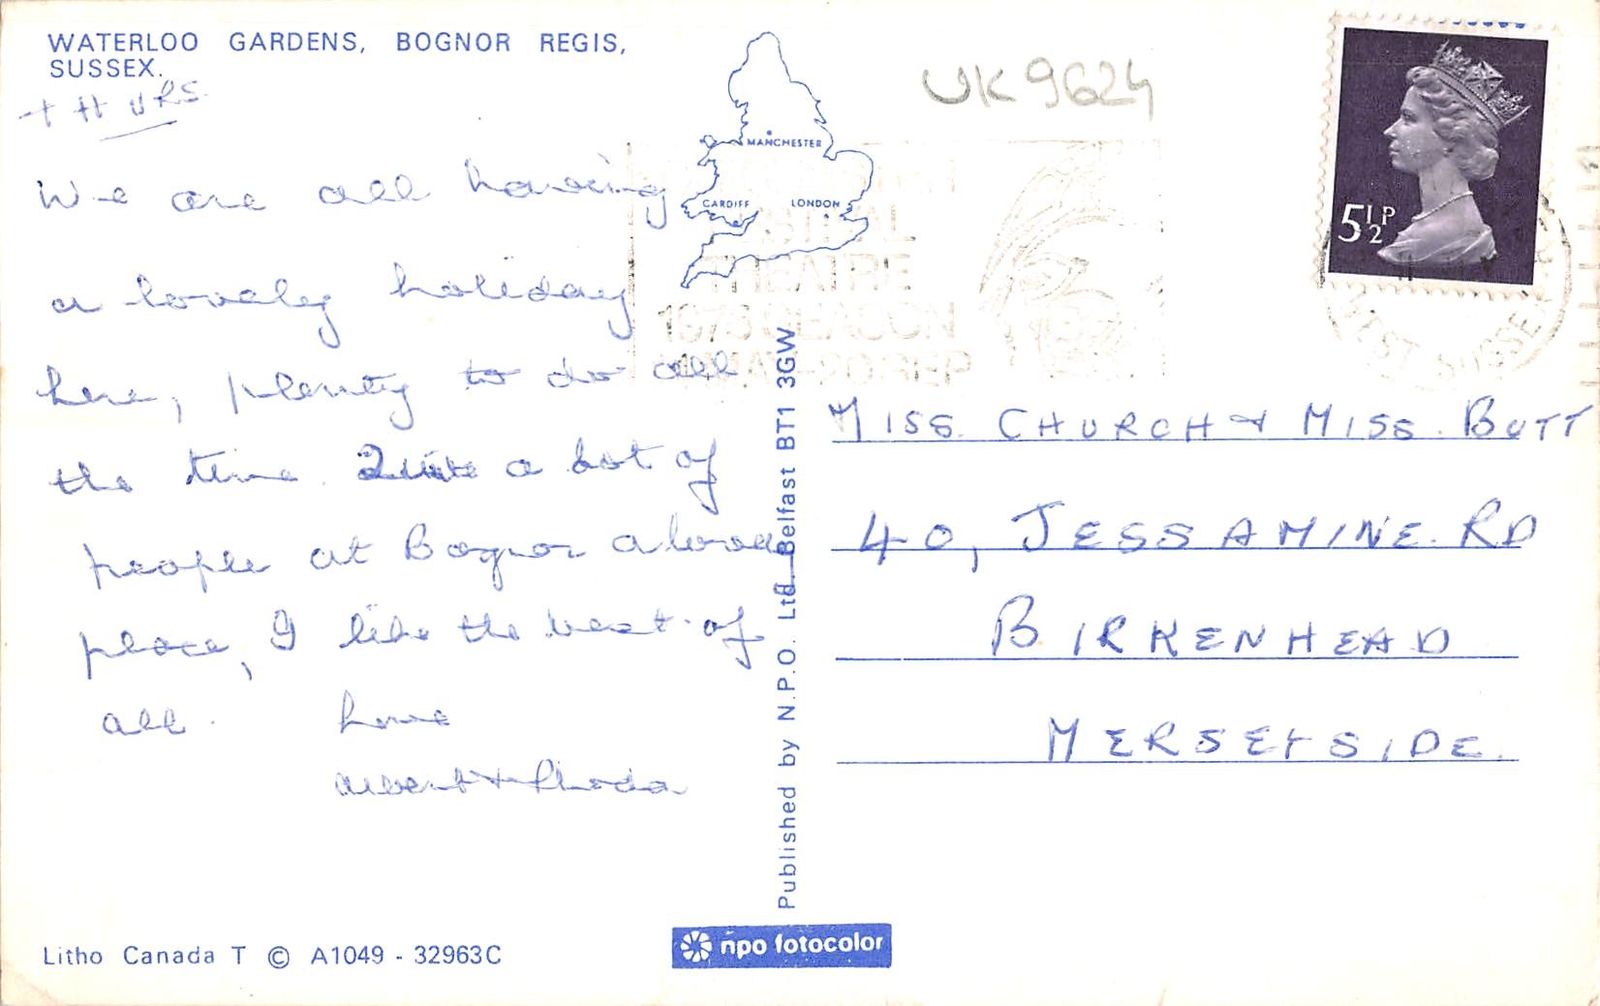 WATERLOO GARDENS, BOGNOR REGIS,
SUSSEX.
THURS.
We are all having
a lovely holiday
here, plenty to do all
the time. Quite a lot of
people at Bognor a lovely
place, I like the best of
all. Love
Albert & Rhoda
Litho Canada T © A1049 - 32963C
MANCHESTER
CARDIFF
LONDON
Published by N.P.O. Ltd. Belfast BT1 3GW
npo fotocolor
UK9624
THEATRE
SEASON
5½P
WEST SUSSEX
MISS CHURCH & MISS. BUTT
40, JESSAMINE. RD
BIRKENHEAD
MERSEYSIDE.